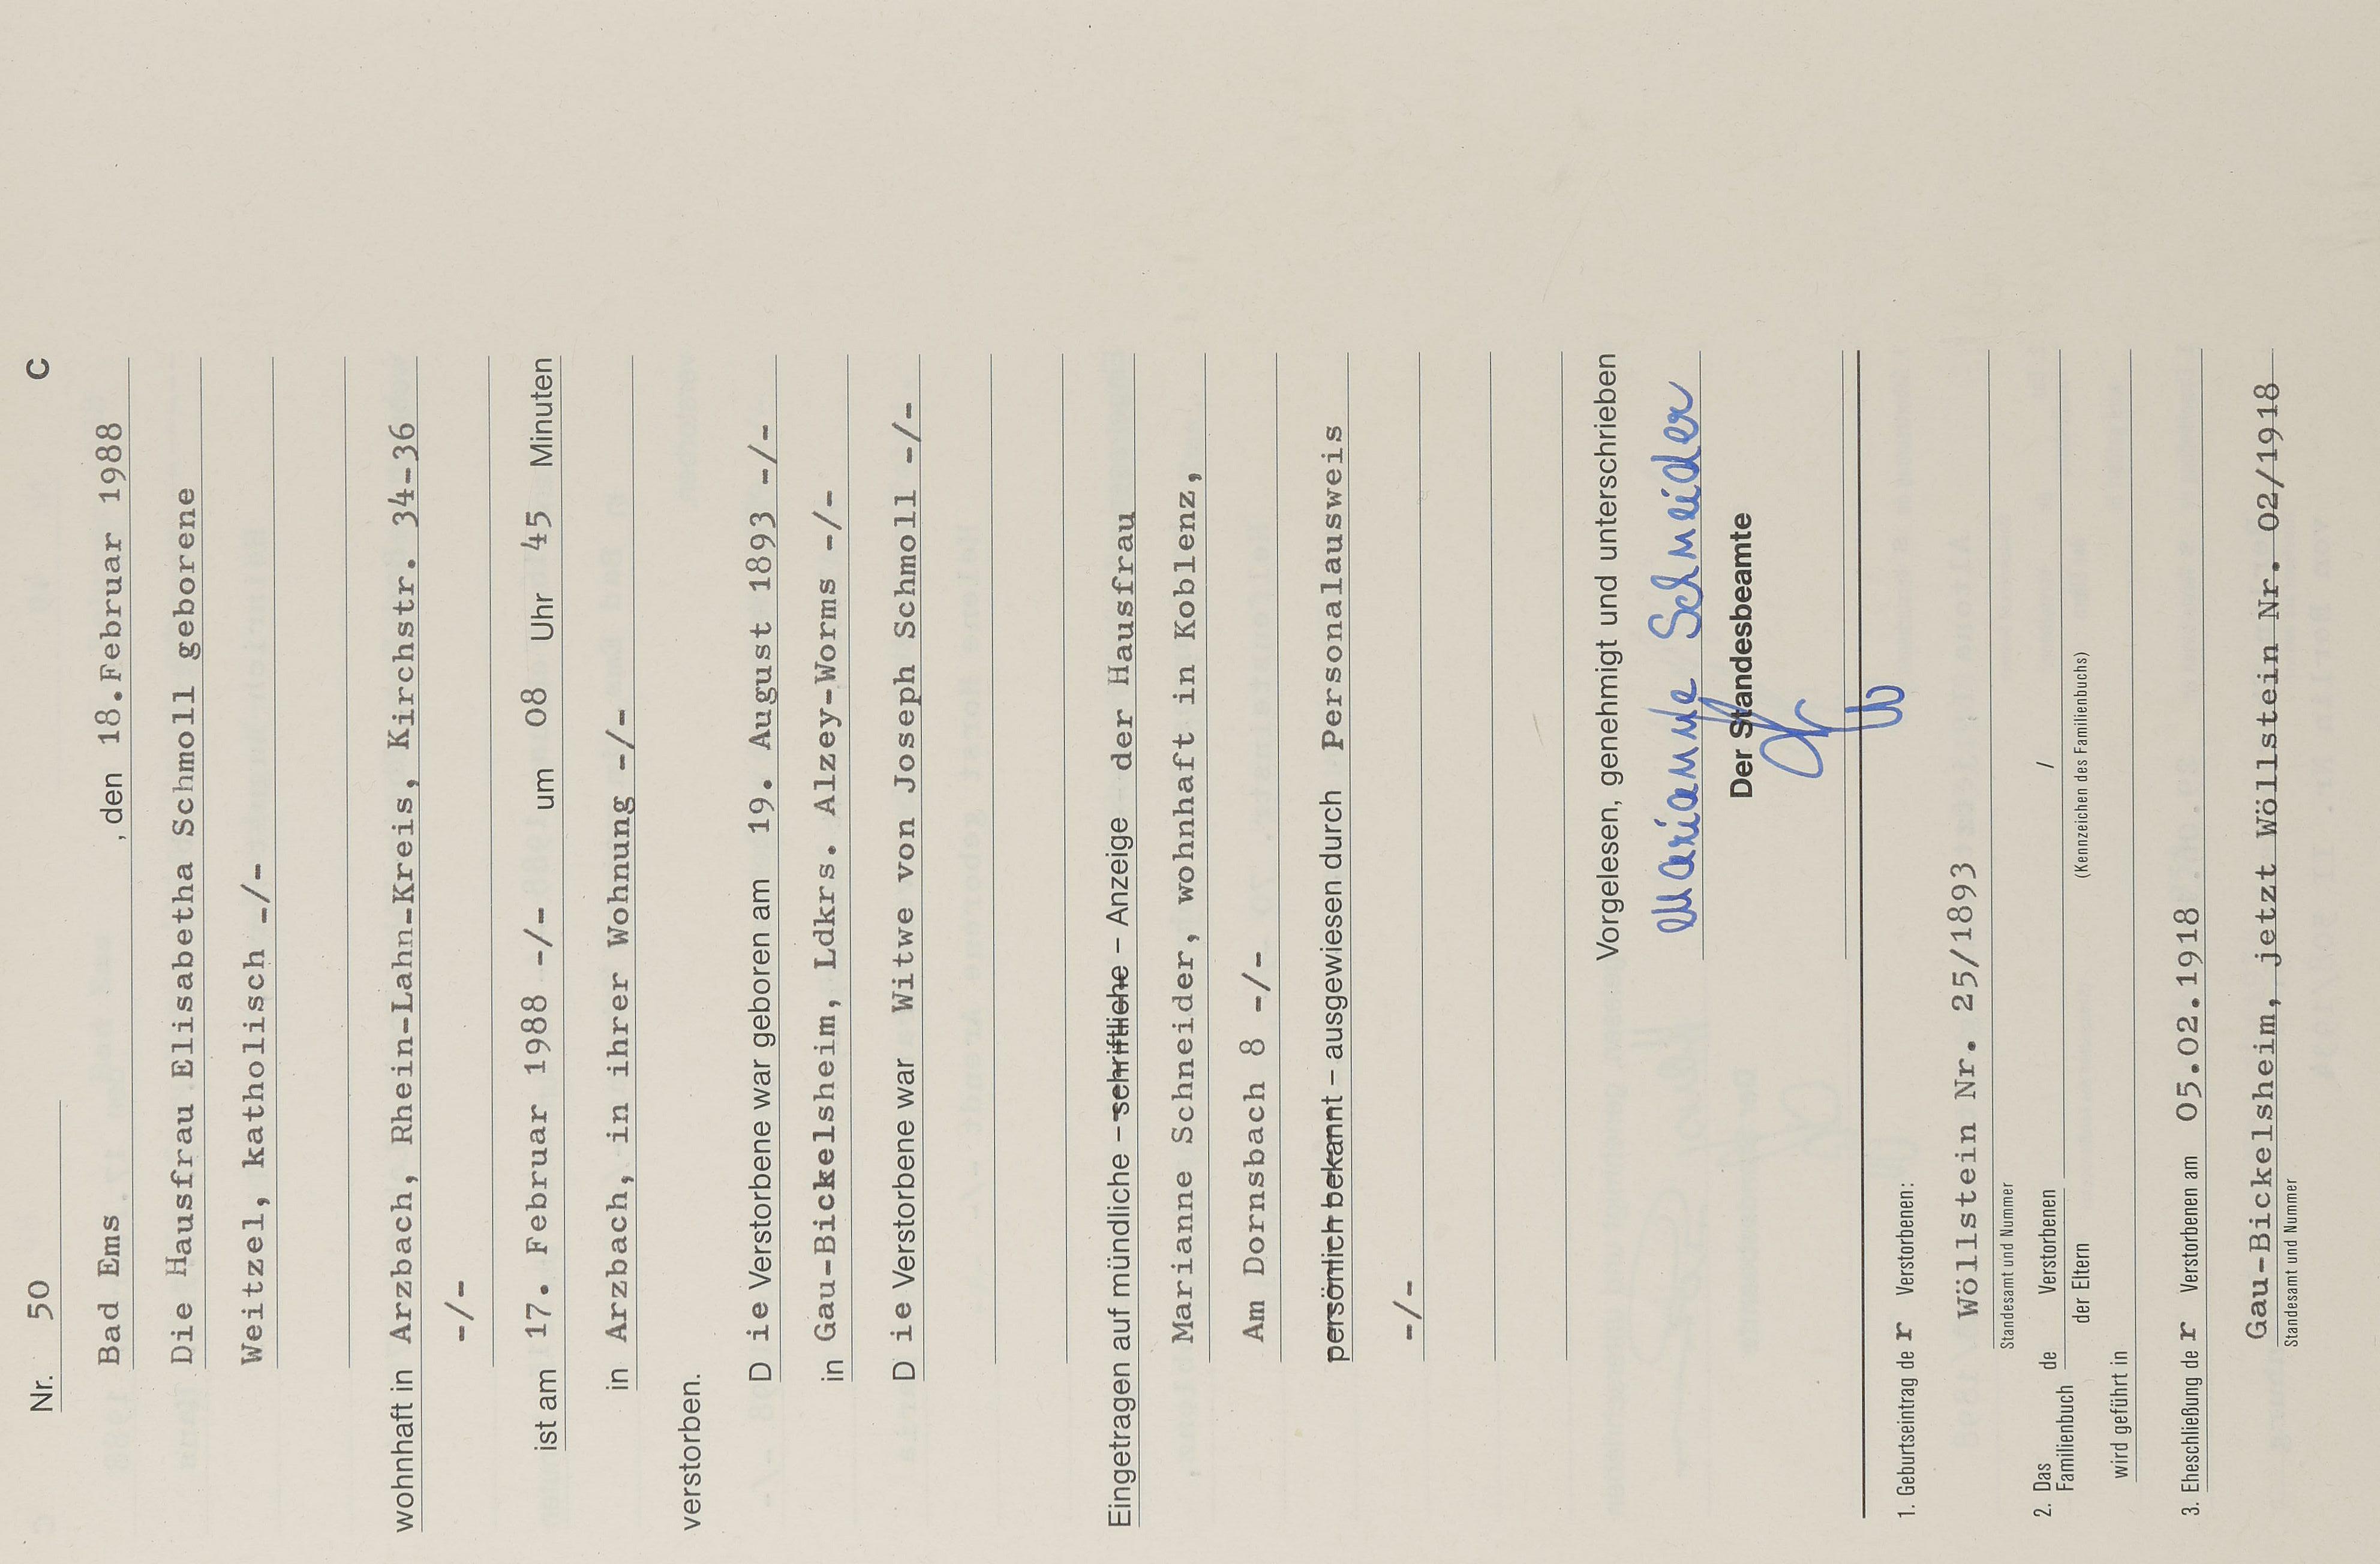 Nr. 50 C
Bad Ems , den 18.Februar 1988
Die Hausfrau Elisabetha Schmoll geborene
Weitzel, katholisch -/-
wohnhaft in Arzbach, Rhein-Lahn-Kreis, Kirchstr. 34-36
-/-
ist am 17. Februar 1988 -/- um 08 Uhr 45 Minuten
in Arzbach, in ihrer Wohnung -/-
verstorben.
D ie Verstorbene war geboren am 19. August 1893 -/-
in Gau-Bickelsheim, Ldkrs. Alzey-Worms -/-
D ie Verstorbene war Witwe von Joseph Schmoll -/-
Eingetragen auf mündliche – schriftliche – Anzeige der Hausfrau
Marianne Schneider, wohnhaft in Koblenz,
Am Dornsbach 8 -/-
persönlich bekannt – ausgewiesen durch Personalausweis
-/-
Vorgelesen, genehmigt und unterschrieben
Marianne Schneider
Der Standesbeamte
1. Geburtseintrag de r Verstorbenen:
Wöllstein Nr. 25/1893
Standesamt und Nummer
2. Das Familienbuch de Verstorbenen /
der Eltern (Kennzeichen des Familienbuchs)
wird geführt in
3. Eheschließung de r Verstorbenen am 05.02.1918
Gau-Bickelsheim, jetzt Wöllstein Nr. 02/1918
Standesamt und Nummer